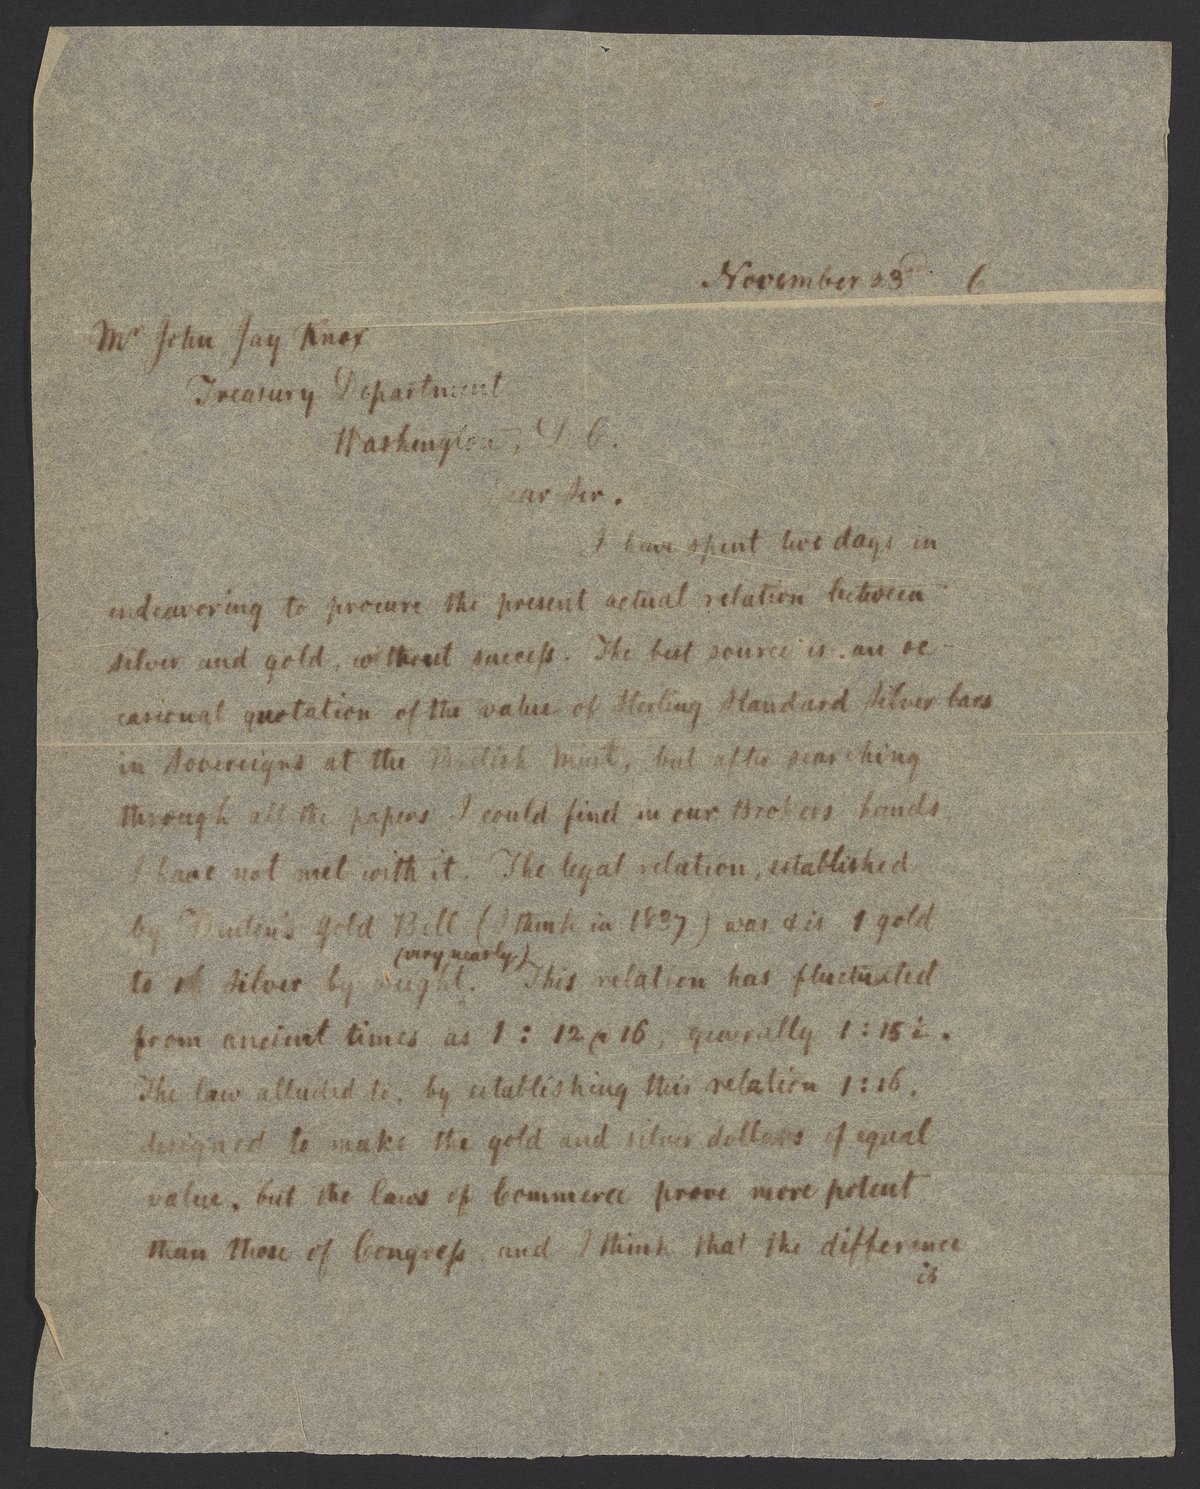 November 23rd 6
Mr John Jay Knox
Treasury Department
Washington, D. C.
Dear Sir.
I have spent two days in
endeavoring to procure the present actual relation between
silver and gold, without success. The best source is an oc-
casional quotation of the value of Sterling Standard Silver bars
in Sovereigns at the British Mint, but after searching
through all the papers I could find in our Brokers hands,
I have not met with it. The legal relation, established
by Benton's Gold Bill (I think in 1837) was & is 1 gold
(very nearly)
to 16 silver by weight. This relation has fluctuated
from ancient times as 1 : 12 @ 16, generally 1 : 15
The law alluded to, by establishing this relation 1 : 16,
designed to make the gold and silver dollars of equal
value, but the laws of Commerce prove more potent
than those of Congress, and I think that the difference
is